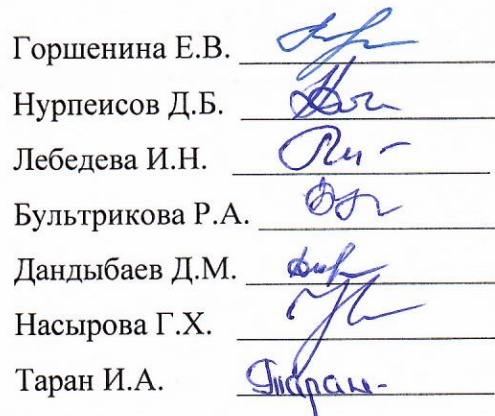 Горшенина Е.В.
Нурпеисов Д.Б.
Лебедева И.Н.
Бультрикова Р.А.
Дандыбаев Д.М.
Насырова Г.Х.
Таран И.А. Таран-